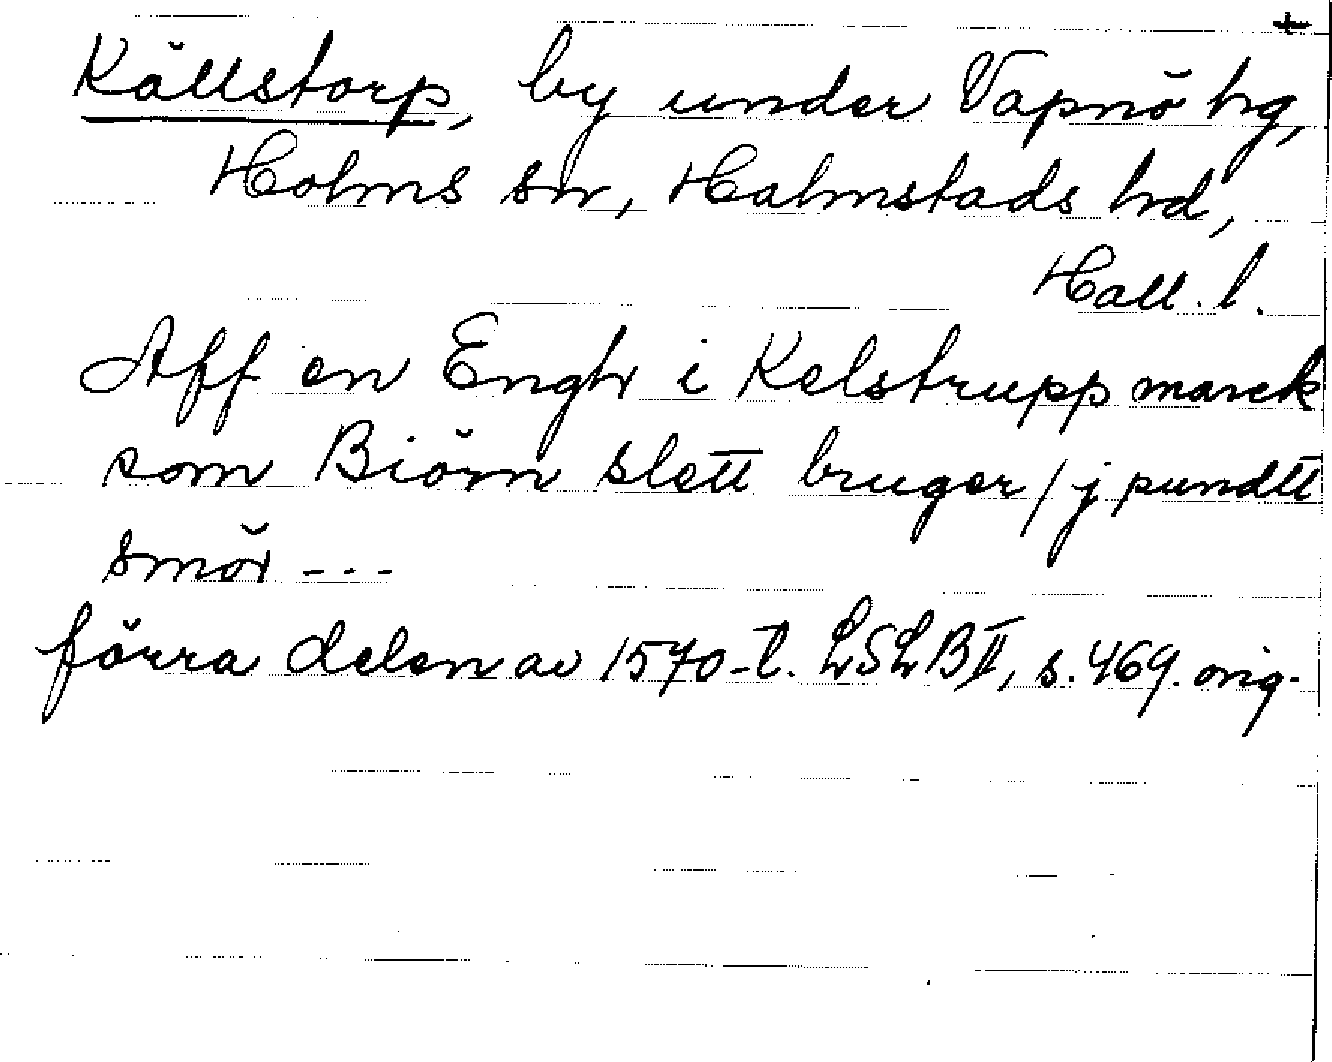 +
Källstorp, by under Vapnö hg,
Holms sn, Halmstads hd,
Hall. l.
Aff en Engh i Kelstrupp marck
som Biörn slett bruger / j pundtt
smör ---
förra delen av 1570-t. LSLB II, s. 469. orig.